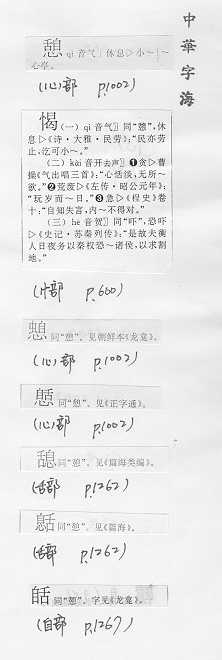 中華字海
憩 qì 音气〕休息▷小~|~
心亭。
(心部 P.1002)
愒(一) qì 音气〕同“憩”,休
息▷《诗·大雅·民劳》:“民亦劳
止,汔可小~。”
(二) kài 音开去声〕❶贪▷曹
操《气出唱三首》:“心恬淡,无所~
欲。”❷荒废▷《左传·昭公元年》:
“玩岁而~日。”❸急▷《桯史》卷
十:“自知失言,内~不得对。”
(三) hè 音贺〕同“吓”,恐吓
▷《史记·苏秦列传》:“是故夫衡
人日夜务以秦权恐~诸侯,以求割
地。”
(忄部 P.600)
同“憩”。见朝鲜本《龙龛》。
(心部 P.1002)
同“憩”。见《正字通》。
(心部 P.1002)
同“憩”。见《篇海类编》。
(舌部 P.1262)
同“憩”。见《篇海》。
(舌部 P.1262)
同“憩”。字见《龙龛》。
(自部 P.1267)